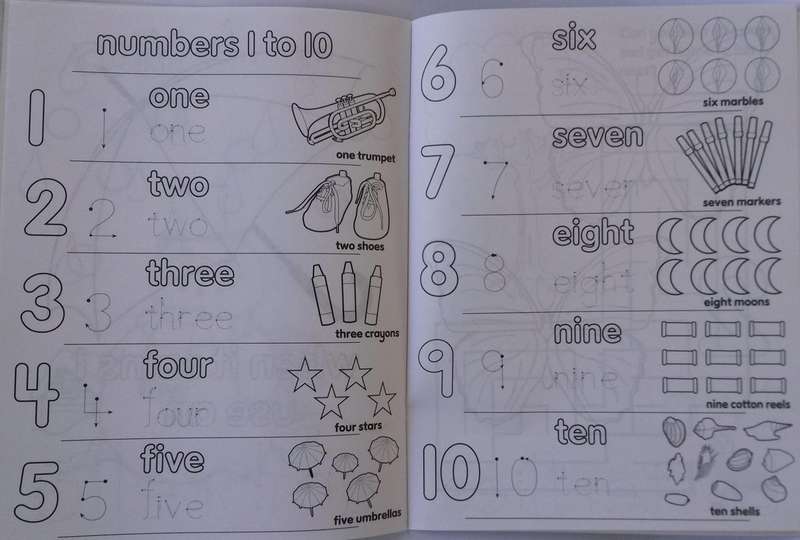 numbers 1 to 10
1 1 one
one
one trumpet
2 2 two
two
two shoes
3 3 three
three
three crayons
4 4 four
four
four stars
5 5 five
five
five umbrellas
6 6 six
six
six marbles
7 7 seven
seven
seven markers
8 8 eight
eight
eight moons
9 9 nine
nine
nine cotton reels
10 10 ten
ten
ten shells